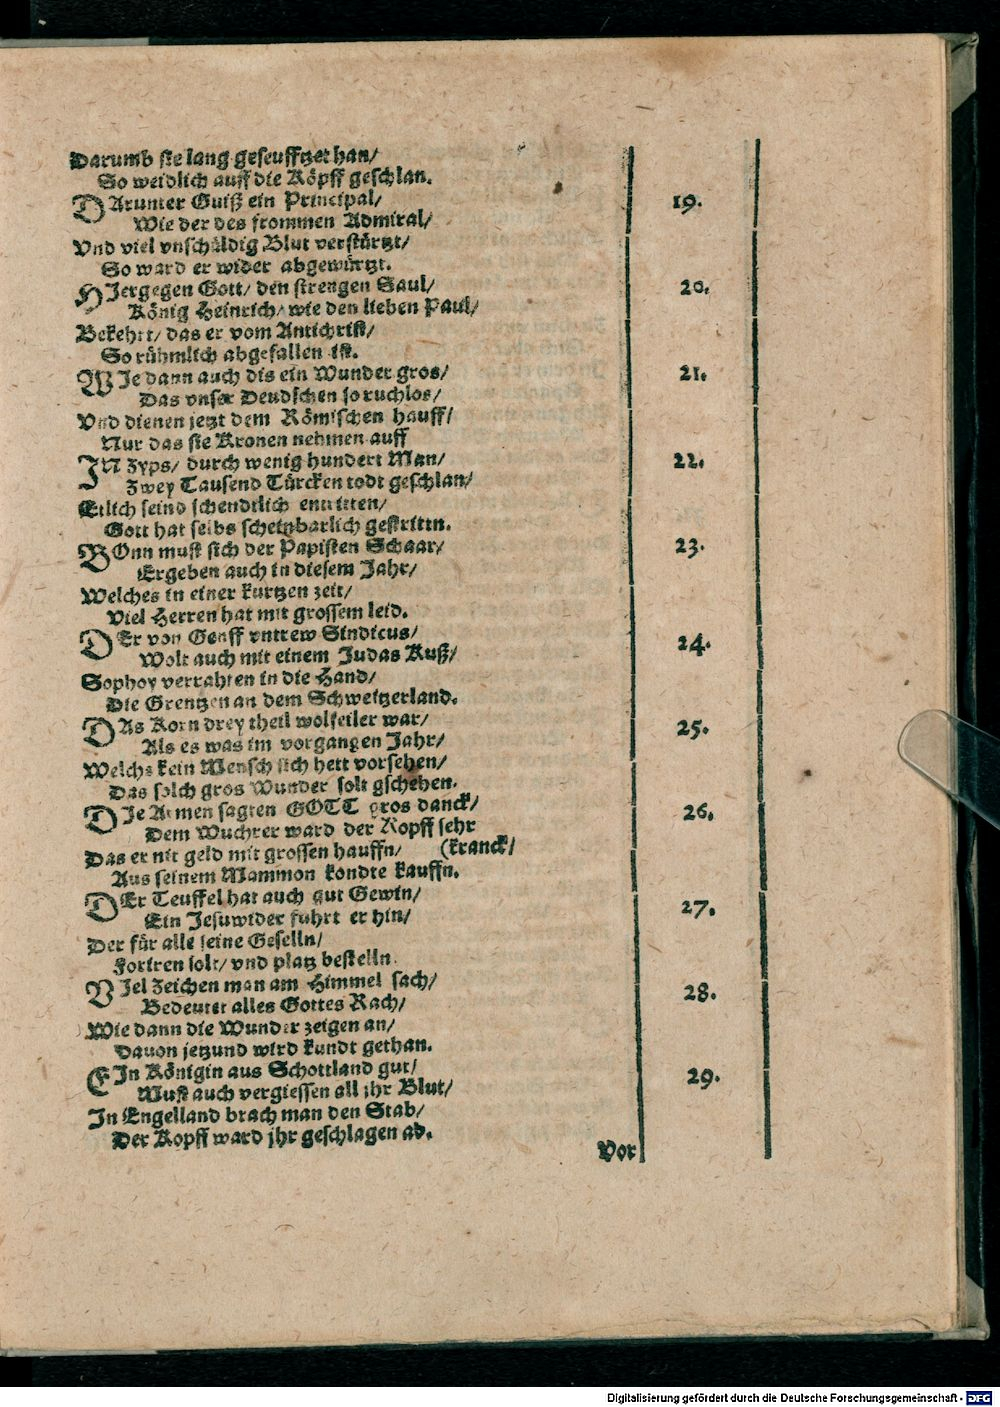 Darumb sie lang geseufftzet han/
So weidlich auff die Köpff geschlan.
DArunter Guiß ein Principal/ 19.
Wie der des frommen Admiral/
Vnd viel vnschüldig Blut verstürtzt/
So ward er wider abgewürtzt.
HIergegen Gott/ den strengen Saul/ 20.
König Heinrich/ wie den lieben Paul/
Bekehrt/ das er vom Antichrist/
So rühmlich abgefallen ist.
WIe dann auch dis ein Wunder gros/ 21.
Das vnser Deudschen so ruchlos/
Vnd dienen jetzt dem Römischen hauff/
Nur das sie Kronen nehmen auff
IN Zyps/ durch wenig hundert Man/ 22.
Zwey Tausend Türcken todt geschlan/
Etlich seind schendtlich entritten/
Gott hat selbs scheinbarlich gestrittn.
BOnn must sich der Papisten Schaar/ 23.
Ergeben auch in diesem Jahr/
Welches in einer kurtzen zeit/
Viel Herren hat mit grossem leid.
DEr von Genff vntrew Sindicus/ 24.
Wolt auch mit einem Judas Kuß/
Sophoy verrahten in die Hand/
Die Grentzen an dem Schweitzerland.
DAs Korn drey theil wolfeiler war/ 25.
Als es was im vorgangen Jahr/
Welchs kein Mensch sich hett vorsehen/
Das solch gros Wunder solt gschehen.
DIe Armen sagten GOTT gros danck/ 26.
Dem Wuchrer ward der Kopff sehr
(kranck/
Das er nit geld mit grossen hauffn/
Aus seinem Mammon kondte kauffn.
DEr Teuffel hat auch gut Gewin/ 27.
Ein Jesuwider fuhrt er hin/
Der für alle seine Geselln/
Fortren solt/ vnd platz bestelln.
VIel Zeichen man am Himmel sach/ 28.
Bedeutet alles Gottes Rach/
Wie dann die Wunder zeigen an/
Dauon jetzund wird kundt gethan.
EIn Königin aus Schottland gut/ 29.
Must auch vergiessen all jhr Blut/
In Engelland brach man den Stab/
Der Kopff ward jhr geschlagen ab.
Vor
Digitalisierung gefördert durch die Deutsche Forschungsgemeinschaft - DFG